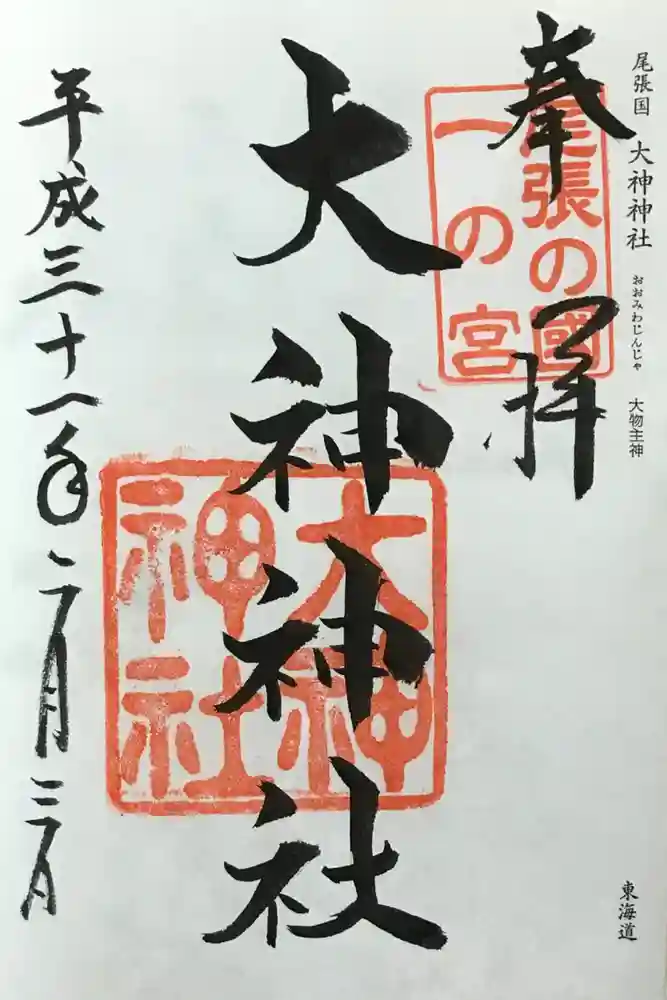 尾張国 大神神社 おおみわじんじゃ 大物主神
東海道
奉拝
尾張の國
一の宮
大神神社
大神
神社
平成三十一年二月三日